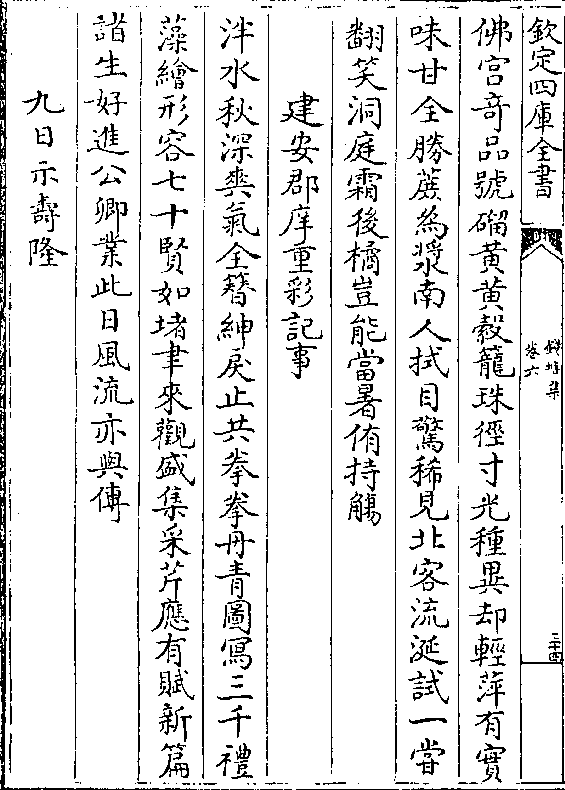 欽定四庫全書
卷六
二十四
佛宮竒品號磂黃黃縠籠珠徑寸光種異却輕萍有實
味甘全勝蔗為漿南人拭目驚稀見北客流涎試一甞
翻笑洞庭霜後橘豈能當暑侑持觴
建安郡庠重彩記事
泮水秋深爽氣全簪紳戾止共拳拳丹青圖冩三千禮
藻繪形容七十賢如堵聿來觀盛集采芹應有賦新篇
諸生好進公卿業此日風流亦輿傳
九日示壽隆